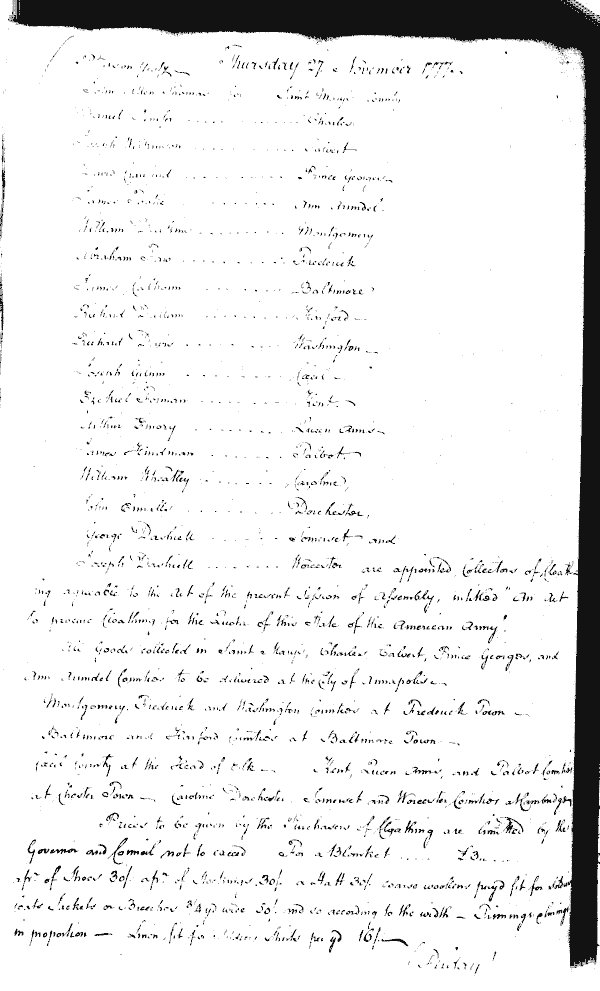 Thursday 27 November 1777.
John Allen Thomas for Saint Mary's County
Daniel Jenifer . . . . . . Charles
Joseph Wilkinson . . . . . . Calvert
David Craufurd . . . . . . Prince Georges
James Tootle . . . . . . Ann Arundel
William Deakins . . . . . . Montgomery
Abraham Faw . . . . . . Frederick
James Calhoun . . . . . . Baltimore
Richard Dallam . . . . . . Harford
Richard Davis . . . . . . Washington
Joseph Gilpin . . . . . . Cæcil
Ezekiel Forman . . . . . . Kent
Arthur Emory . . . . . . Queen Anns
James Hindman . . . . . . Talbot
William Wheatley . . . . . . Caroline,
John Ennalls . . . . . . Dorchester,
George Dashiell . . . . . . Somerset, and
Joseph Dashiell . . . . . . Worcester are appointed Collectors of Cloath-
ing agreeable to the Act of the present Session of Assembly, intitled "An Act
to procure Cloathing for the Quota of this State of the American Army".
All Goods collected in Saint Marys, Charles Calvert, Prince Georges, and
Ann Arundel Counties to be delivered at the City of Annapolis
Montgomery, Frederick and Washington Counties at Frederick Town
Baltimore and Harford Counties at Baltimore Town
Cæcil County at the Head of Elk Kent, Queen Anns, and Talbot Counties
at Chester Town Caroline Dorchester Somerset and Worcester Counties at Cambridge
Prices to be given by the Purchasers of Cloathing are limitted by the
Governor and Council not to exceed For a Blanket . . . . £3 . .
a pr. of Shoes 30/. a pr. of Stockings 30/. a Hatt 30/. coarse woollens per yd fit for Soldiers
coats Jackets or Breeches 3/4 yd wide 50/. and so according to the width Trimmings & linings
in proportion Linen fit for Soldiers Shirts per yd 16/.
Friday